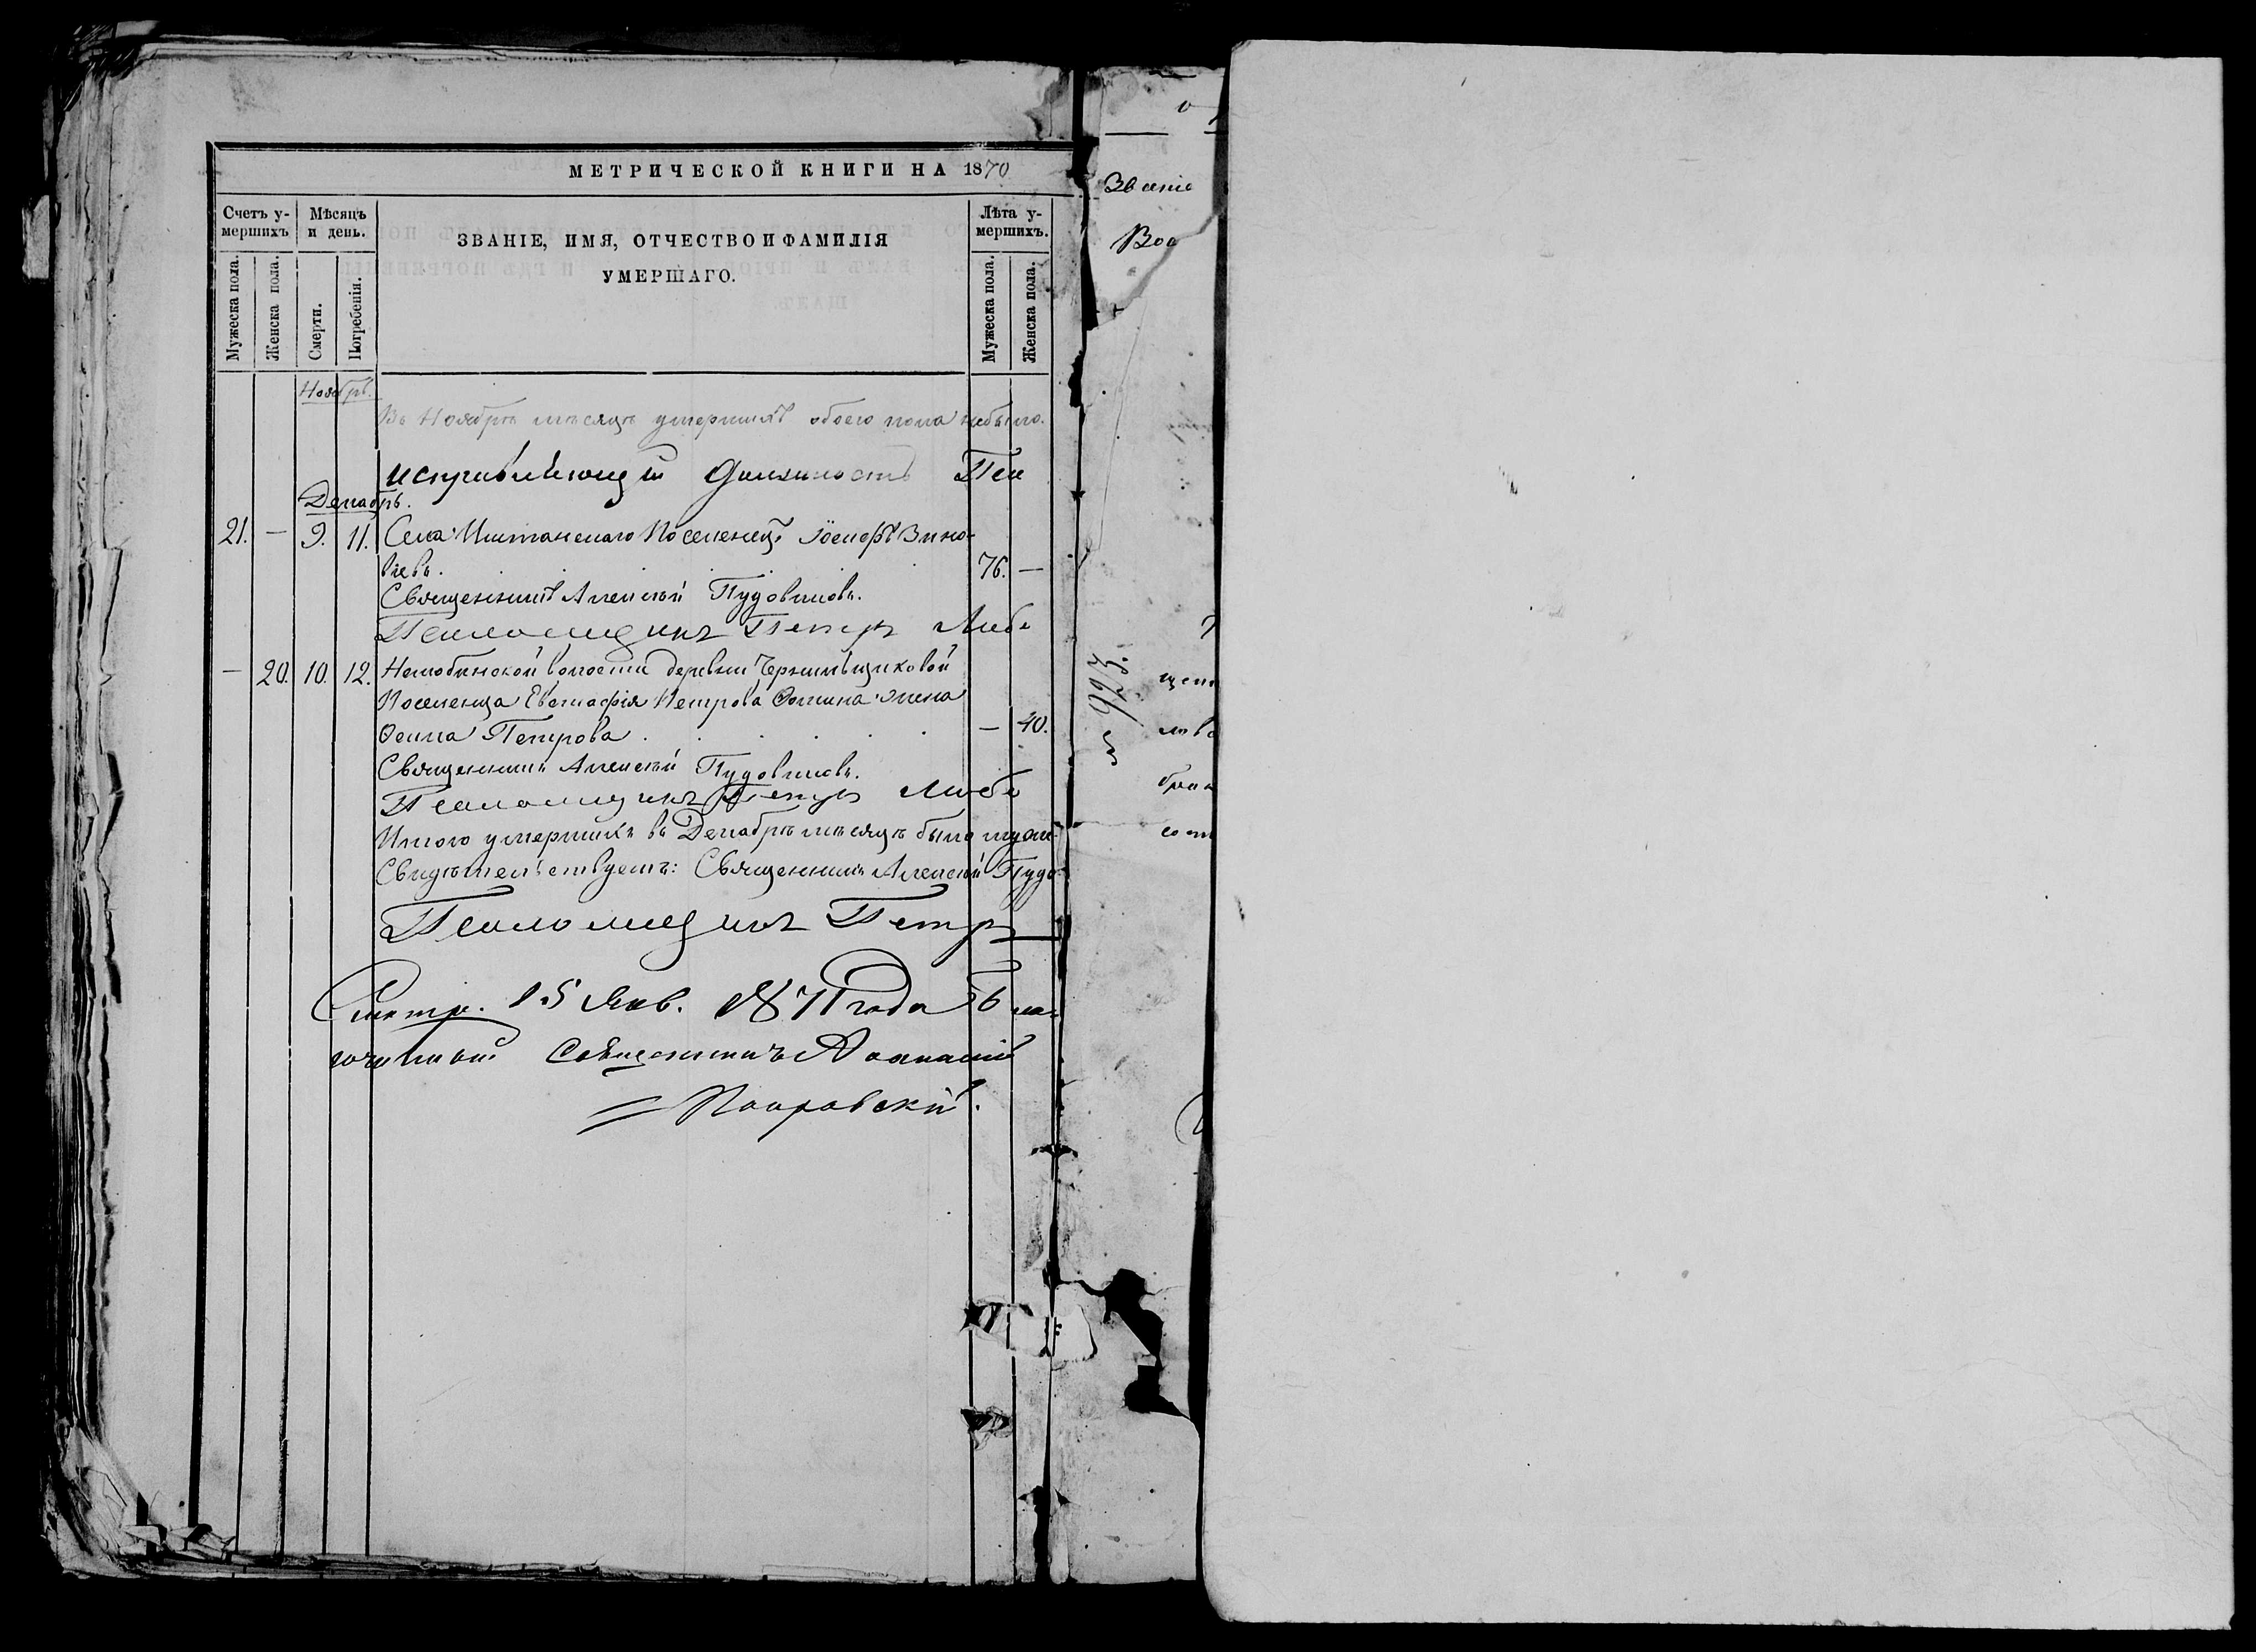 МЕТРИЧЕСКОЙ КНИГИ НА 1870
Счетъ у-
мершихъ
Мѣсяцъ
и день.
ЗВАНІЕ, ИМЯ, ОТЧЕСТВО И ФАМИЛІЯ
УМЕРШАГО.
Лѣта у-
мершихъ.
Мужеска пола.
Женска пола.
Смерти.
Погребенія.
Мужеска пола.
Женска пола.
Ноябрь.
Въ Ноябрѣ мѣсяцѣ умершихъ обоего пола небыло.
исправляющій должность Пса
Декабрь.
21. — 9. 11. Села Иштанскаго Поселенецъ Іосифъ Зино-
вьевъ. 76. —
Священникъ Алексѣй Пудовиковъ.
Псаломщикъ Петръ Любо
— 20. 10. 12. Нелюбинской волости деревни Чернильщиковой
Поселенца Евстафія Петрова жена
Петрова — 40.
Священникъ Алексѣй Пудовиковъ.
Псаломщикъ Петръ Любо
Итого умершихъ въ Декабрѣ мѣсяцѣ было муже-
Свидѣтельствуемъ: Священникъ Алексѣй Пудо-
Псаломщикъ Петръ
15 Янв. 1871 года Бла-
гочинный Священникъ
Покровскій.
Званіе
9923.